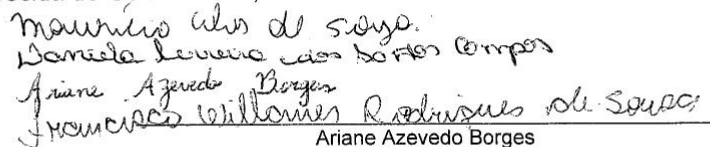 Mauricio de Souza.
Daniela Ferreira dos Santos Campos
Ariane Azevedo Borges
Francisco Willames Rodrigues de Sousa
Ariane Azevedo Borges